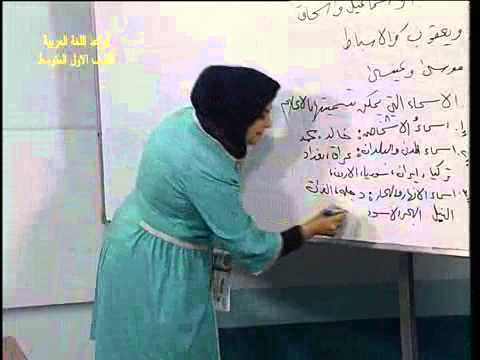 قواعد اللغة العربية
الصف الاول المتوسط
واسماعيل واسحاق
ويعقوب والاسباط
موسى وعيسى
الاسماء التي يمكن تسميتها بالاعلام
١. اسماء الاشخاص: خالد، محمد
٢. اسماء المدن والبلدان: عراق، بغداد
تركيا، ايران، سوريا، الاردن،
٣. اسماء الانهار والبحار: دجلة، الفرات
النيل البحر الاسود